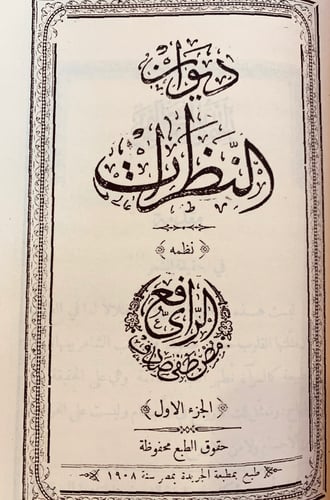 ديوان
النَّظَرات
نظمه
مصطفى صادق الرافعي
الجزء الاول
حقوق الطبع محفوظة
طبع بمطبعة الجريدة بمصر سنة ١٩٠٨